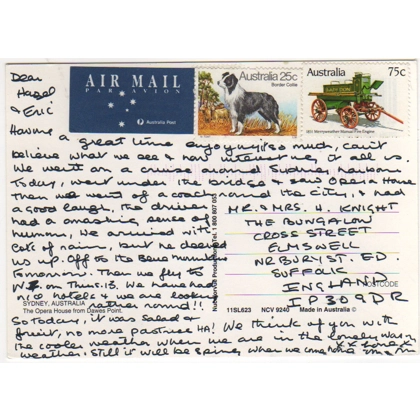 AIR MAIL
PAR AVION
Australia Post
Australia 25c
Border Collie
Australia
75c
Dear
Hazel
& Eric
Having a great time enjoying it so much, can't
believe what we see & how interesting it all is.
We went on a cruise around Sydney harbour
Today, went under the bridge & saw Opera House
Then we went of a coach around the city, & had
a good laugh, the driver
had a amazing sense of
humour, we arrived with
lots of rain, but he cheered
us up. Off to the Blue Mountains
Tomorrow. Then we fly to
NZ on Thurs. 13. We have had
nice hotels & we are looking
rather round!!
So Today, it was salad &
fruit, no more pastries HA! We think of you with
the cooler weather when we are in the lovely warm
weather. Still it will be spring when we come home
MR & MRS. H. KNIGHT
THE BUNGALOW
CROSS STREET
ELMSWELL
NR BURY ST. ED.
SUFFOLK
ENGLAND
IP30 9DR
POSTCODE
SYDNEY, AUSTRALIA
The Opera House from Dawes Point.
11SL623 NCV 9240 Made in Australia ©